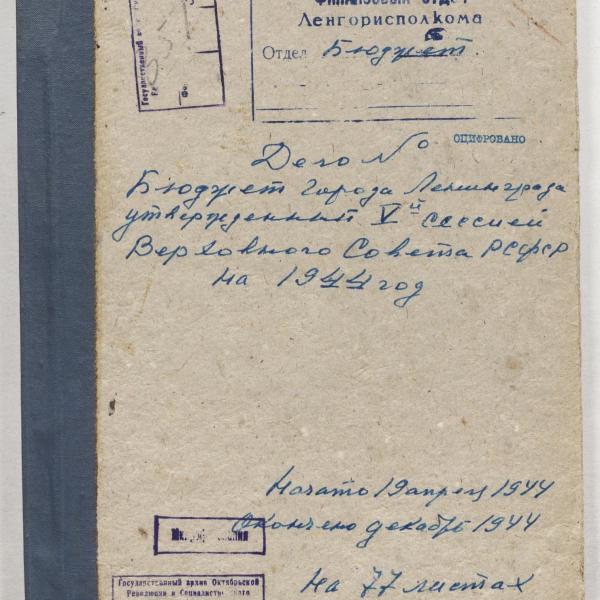 Государственный
ФИНАНСОВЫЙ ОТДЕЛ
Ленгорисполкома
Отдел Бюджет.
ОЦИФРОВАНО
Дело №
Бюджет города Ленинграда
утвержденный V й сессией
Верховного Совета РСФСР
на 1944 год
Начато 19 апрель 1944
Окончено декабрь 1944
На 77 листах
Государственный архив Октябрьской
Революции и Социалистического